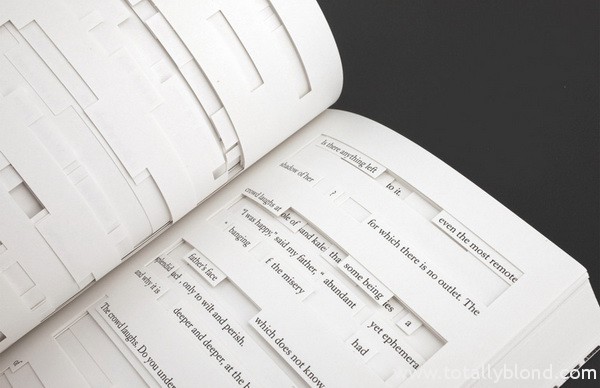 Is there anything left
to it,
even the most remote
shadow of her
for which there is no outlet. The
crowd laughs at
ble of
(and kalei
tha
some being
les
a
"I was happy," said my father, "
abundant
yet ephemera
hanging
f the misery
had
splendid
father's face
and why it is
, only to wilt and perish.
which does not know
deeper and deeper, at the
The crowd laughs. Do you unde
www.totallyblond.com